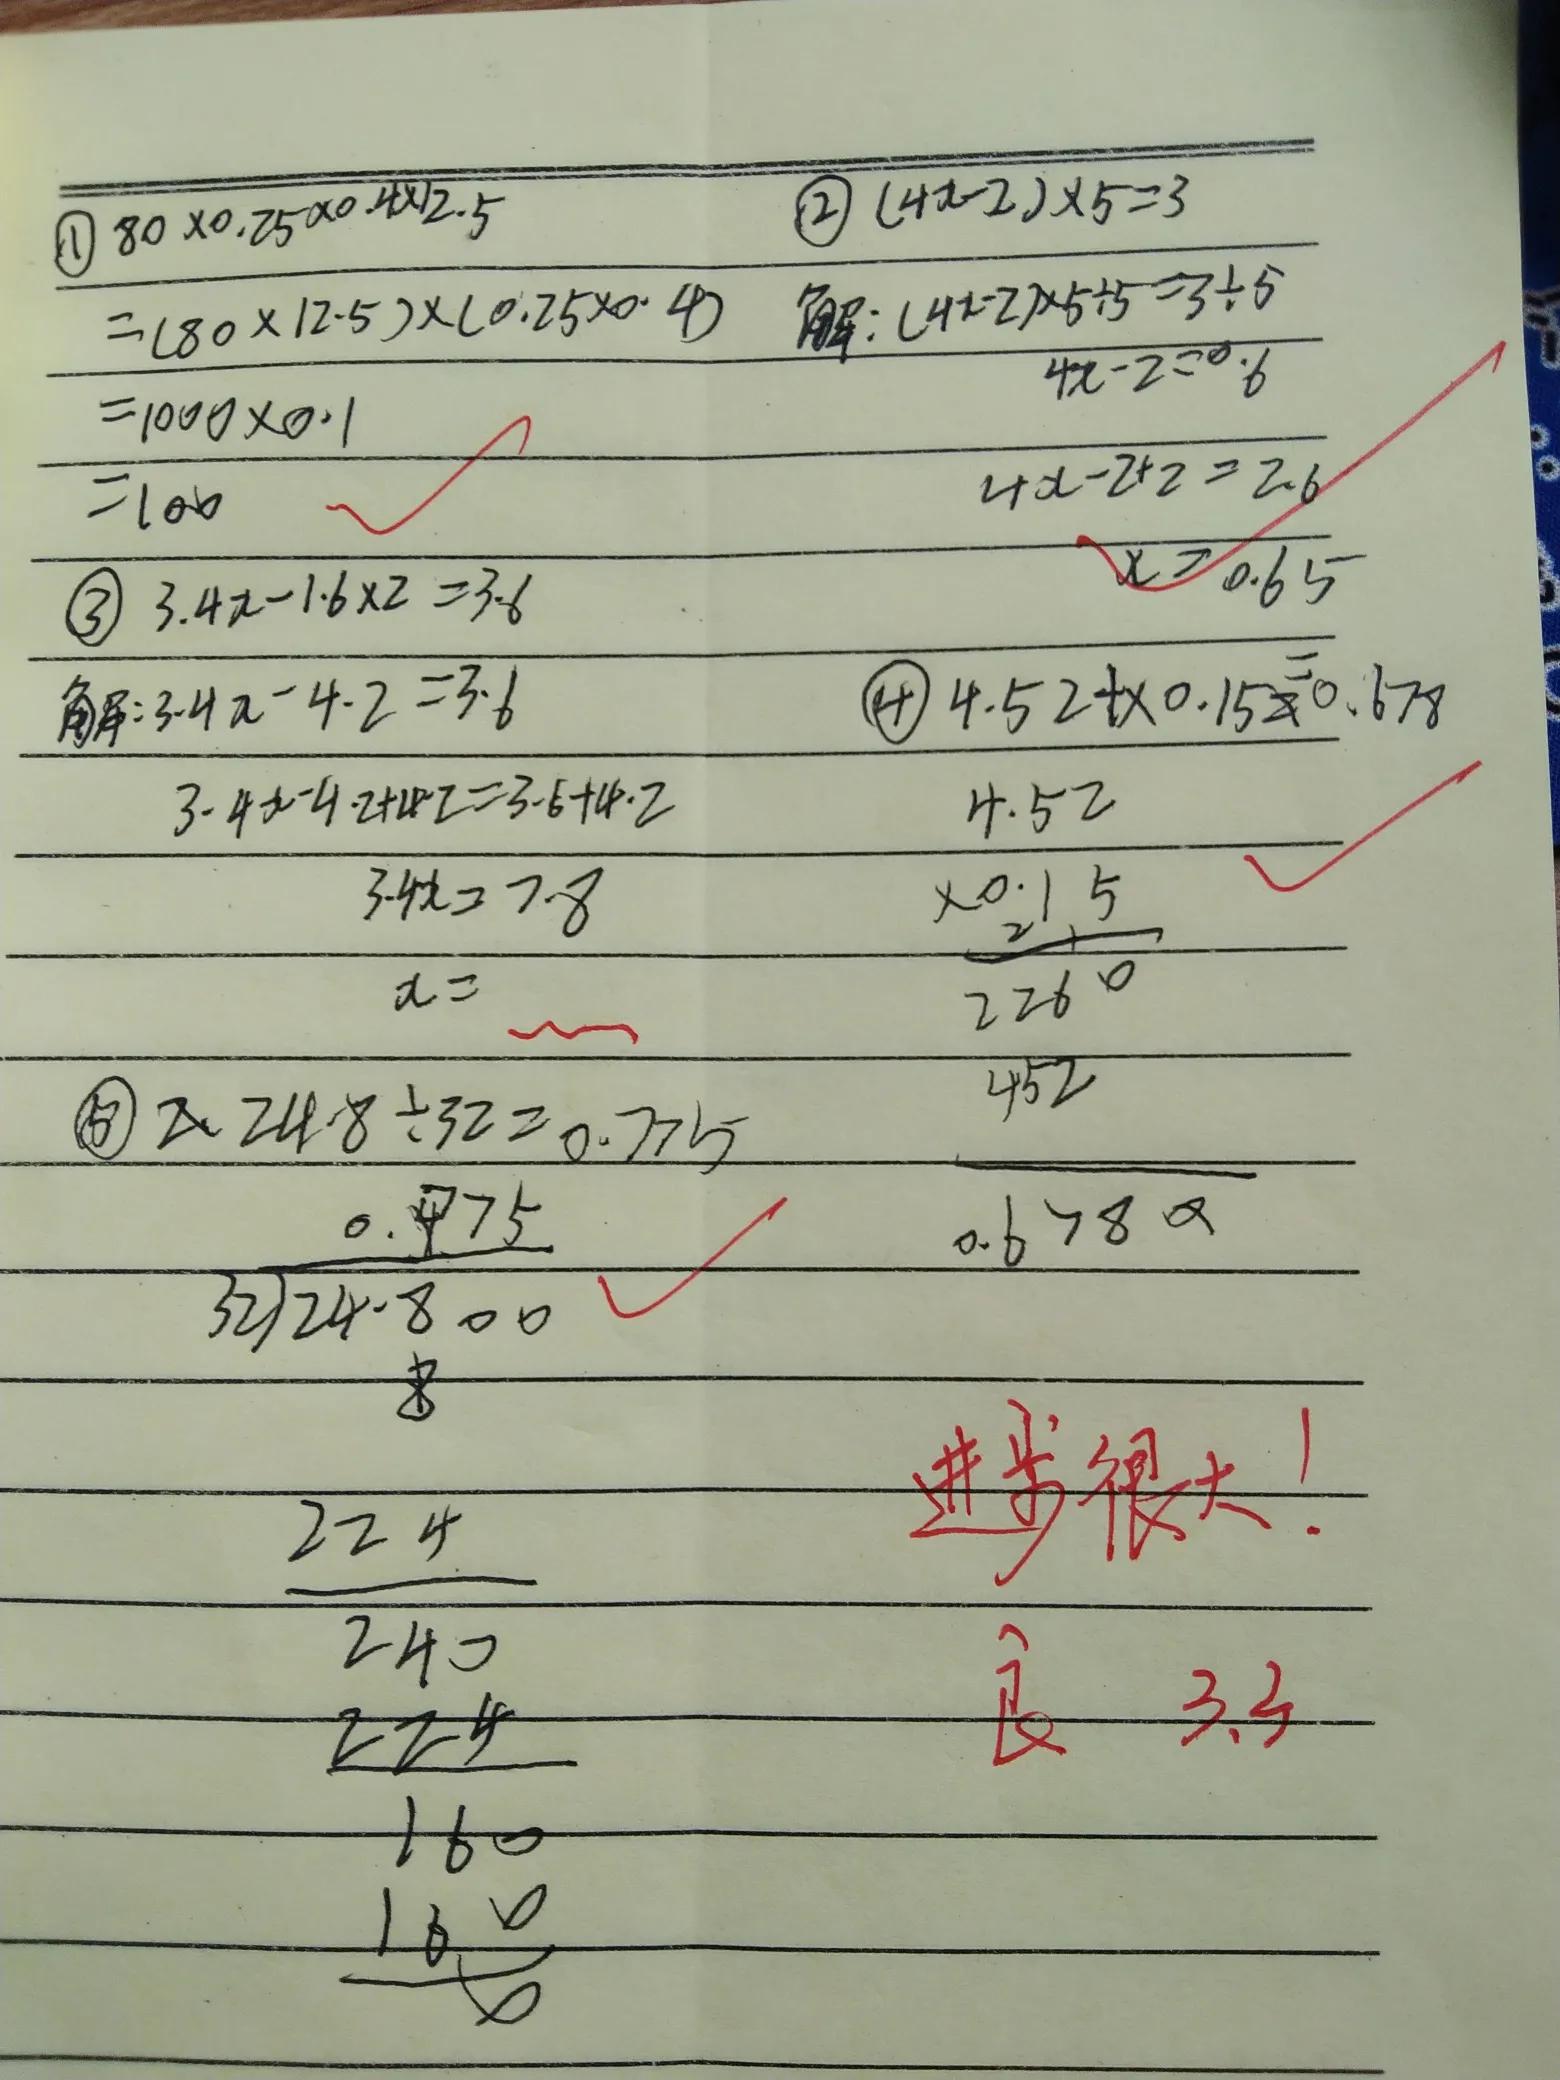 ① 80×0.25×0.4×12.5
=(80×12.5)×(0.25×0.4)
=1000×0.1
=100
② (4x-2)×5=3
解:(4x-2)×5÷5=3÷5
4x-2=0.6
4x-2+2=2.6
x=0.65
③ 3.4x-1.6×2=3.6
解:3.4x-4.2=3.6
3.4x-4.2+4.2=3.6+4.2
3.4x=7.8
x=
④ 4.52×0.15=0.678
4.52
×0.15
2 1
2260
452
0.6780
⑤ 24.8÷32=0.775
0.775
32)24.800
224
240
224
160
160
0
进步很大!
良 3.3